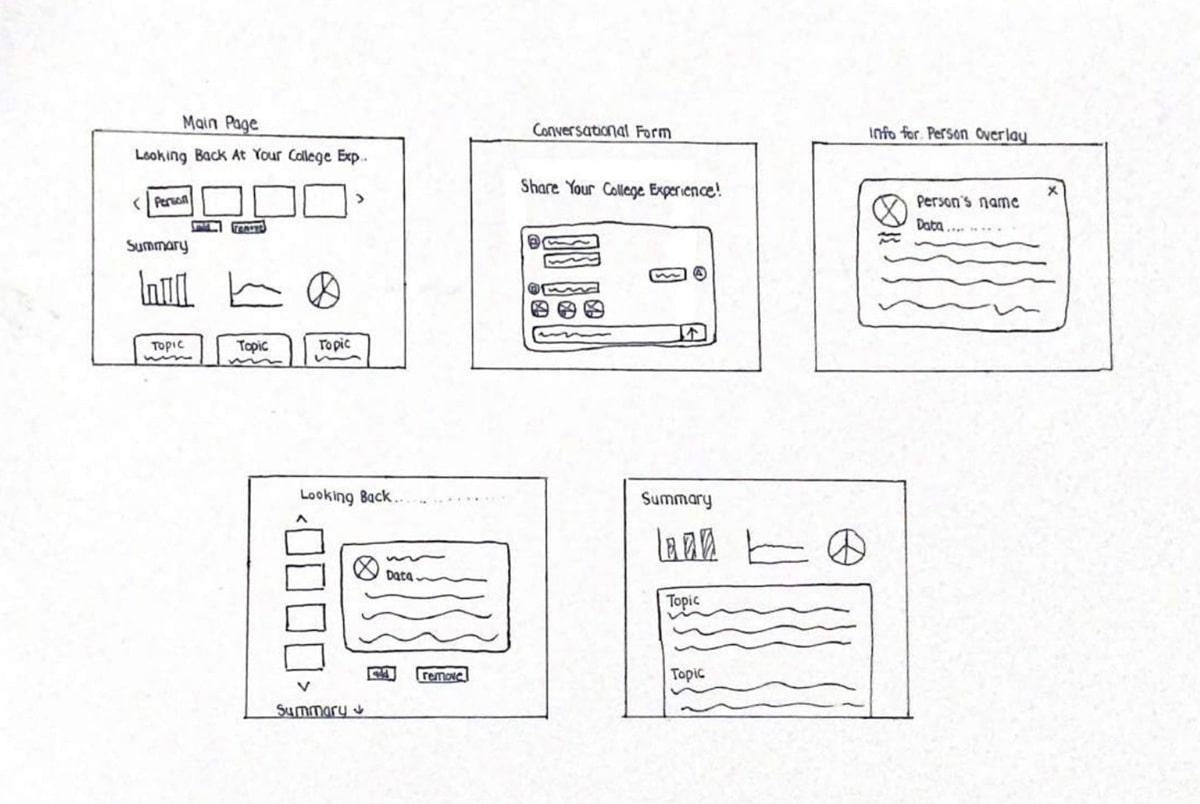 Main Page
Looking Back At Your College Exp..
Person
add
remove
Summary
Topic
Topic
Topic
Conversational Form
Share Your College Experience!
Info for Person Overlay
Person's name
Data...........
Looking Back..............
Data
add
remove
Summary
Summary
Topic
Topic